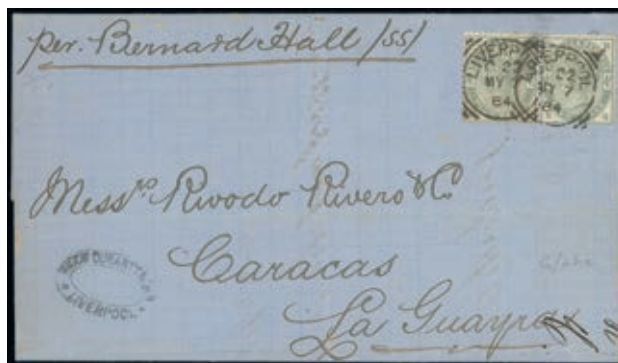 per. Bernard Hall /SS/
LIVERPOOL
22
MY 7
84
LIVERPOOL
22
MY 7
84
Messrs Rivodo Rivero & Co
Caracas
La Guayra
LIVERPOOL